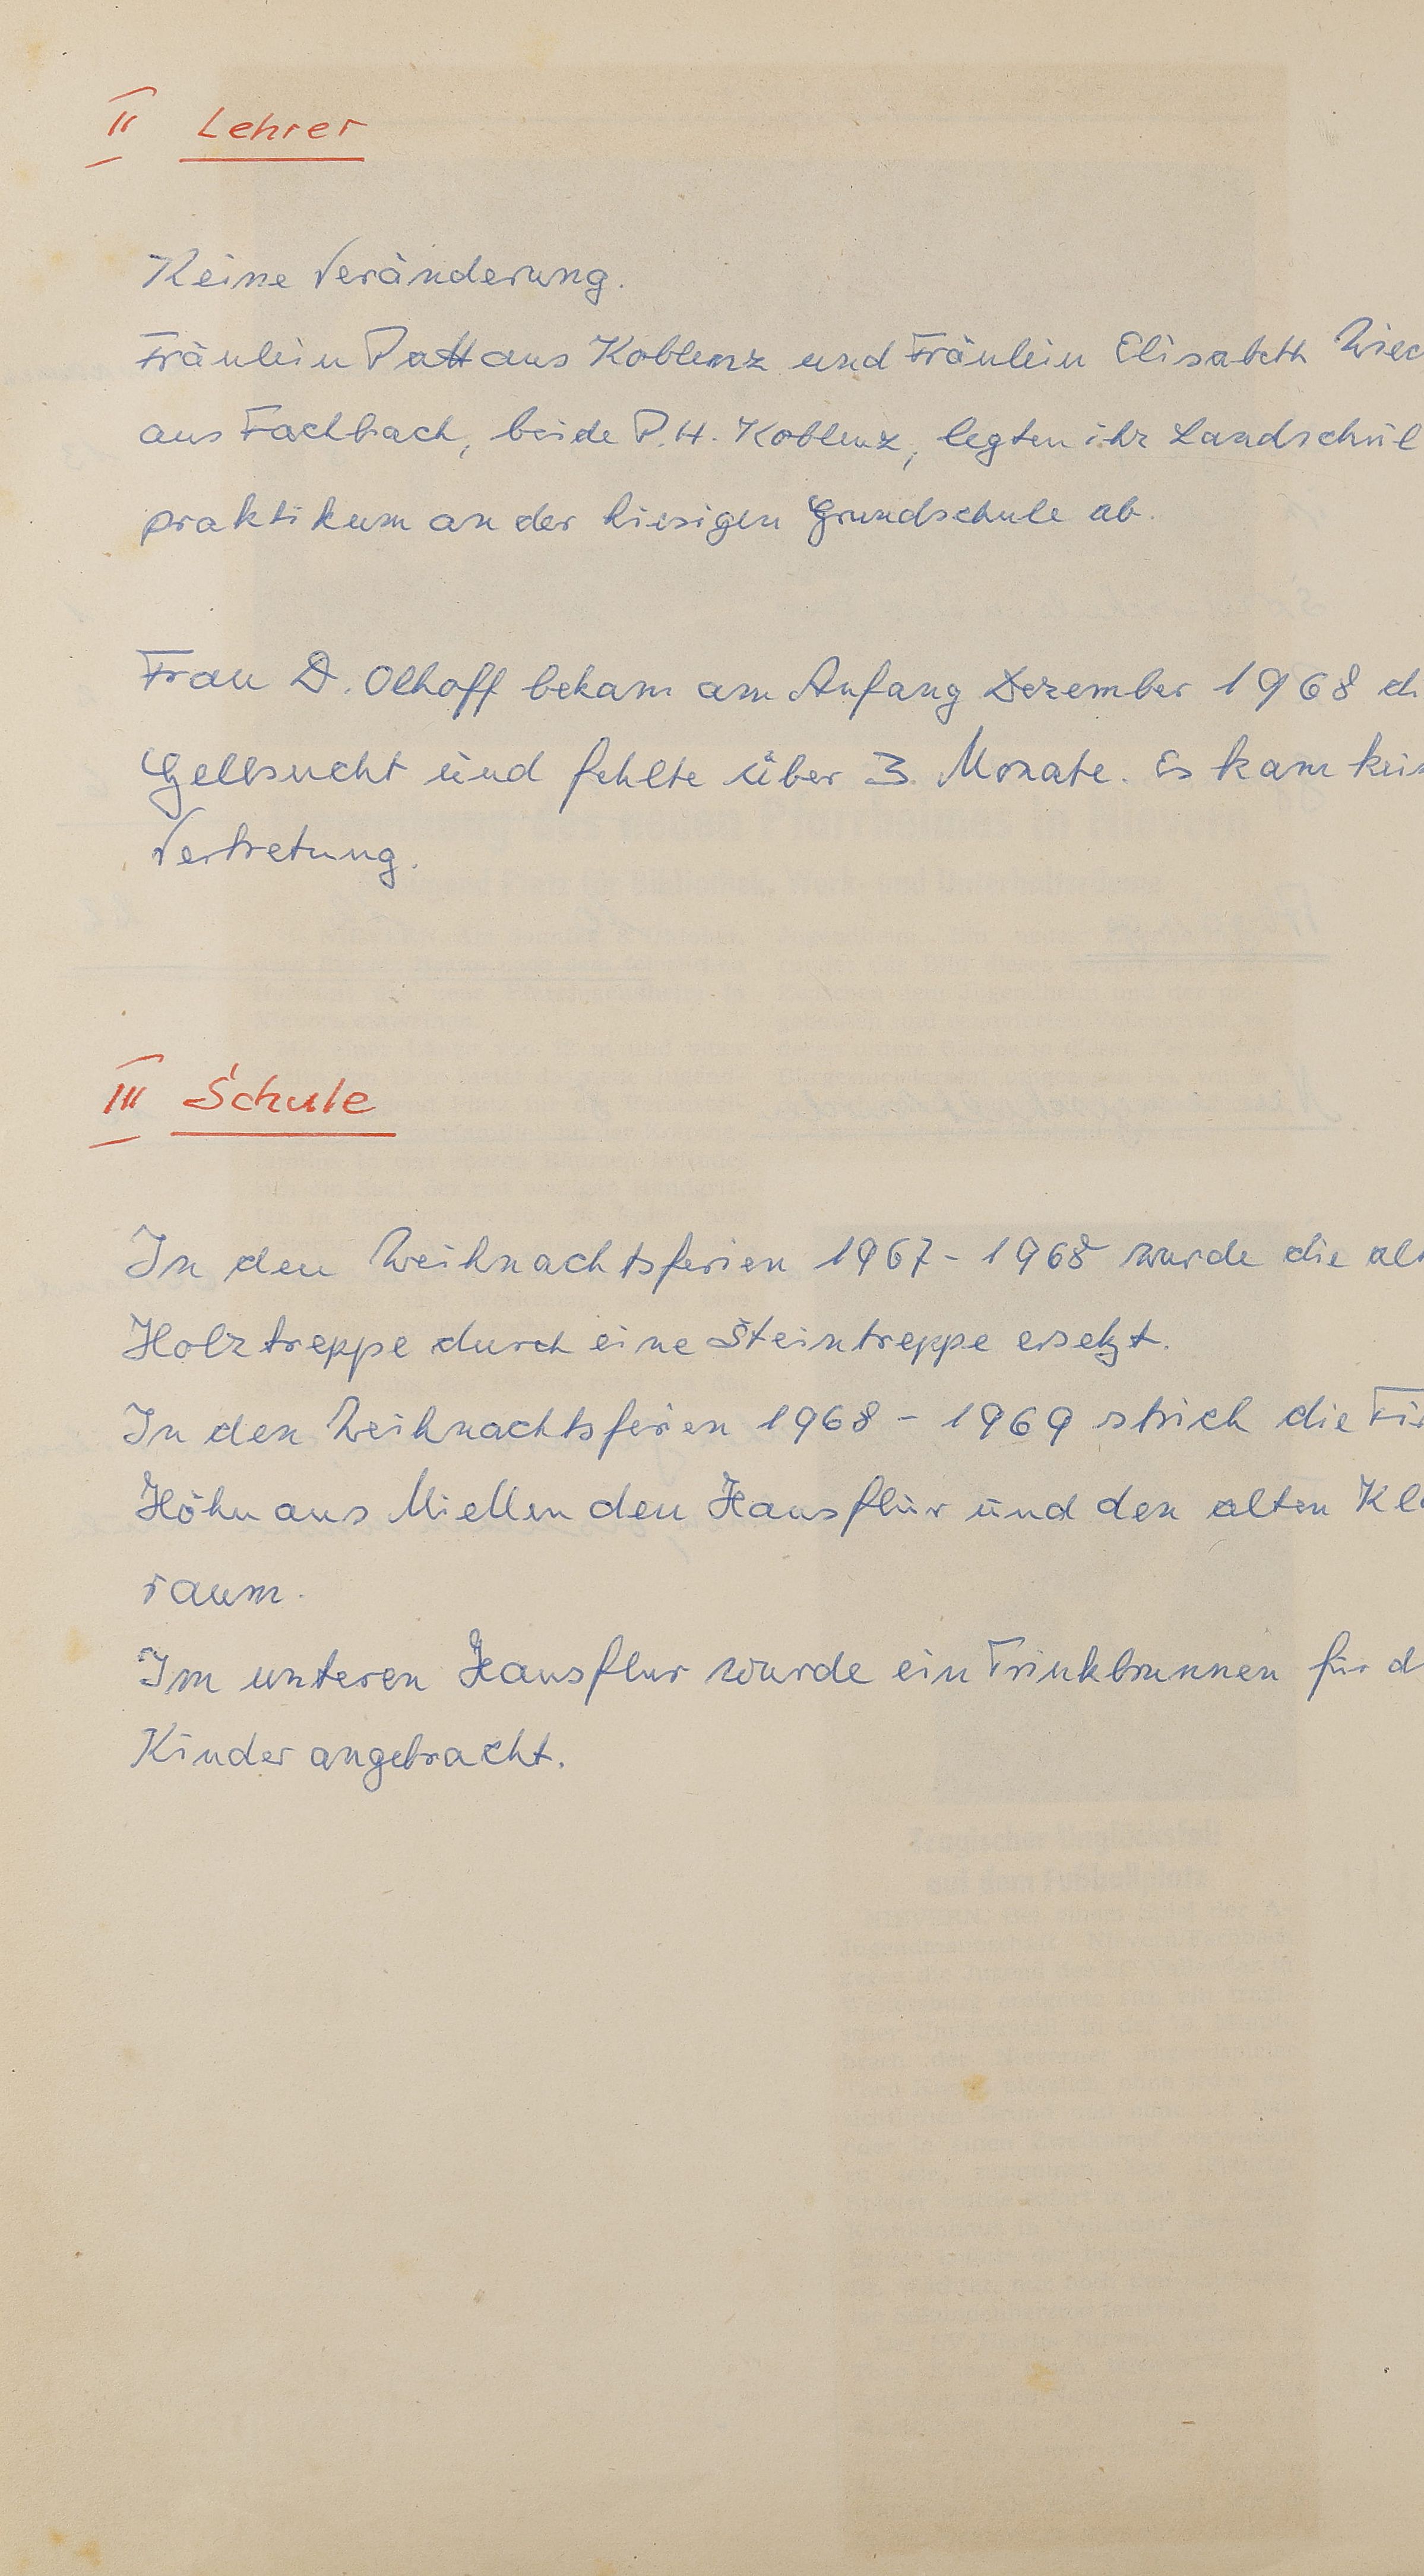 II Lehrer
Keine Veränderung.
Fräulein Patt aus Koblenz und Fräulein Elisabeth
aus Fachbach, beide P.H. Koblenz, legten ihr Landschul
praktikum an der hiesigen Grundschule ab.
Frau D. Olhoff bekam am Anfang Dezember 1968 di
Gelbsucht und fehlte über 3 Monate. Es kam kein
Vertretung.
III Schule
In den Weihnachtsferien 1967 - 1968 wurde die alt
Holztreppe durch eine Steintreppe ersetzt.
In den Weihnachtsferien 1968 - 1969 strich die Fir
Höhn aus Miellen den Hausflur und den alten Kla
raum.
Im unteren Hausflur wurde ein Trinkbrunnen für d
Kinder angebracht.